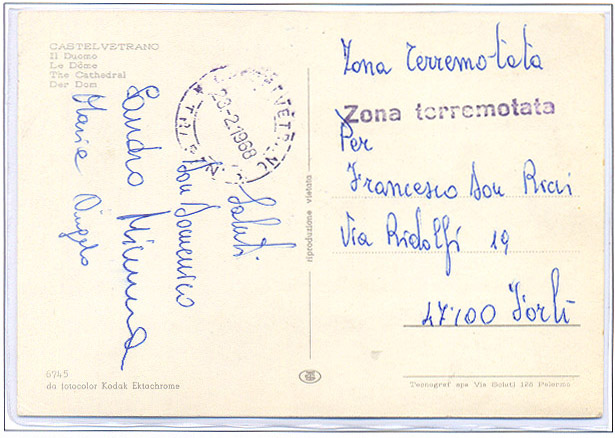 CASTELVETRANO
Il Duomo
Le Dôme
The Cathedral
Der Dom
CASTELVETRANO
23-2-1968
Saluti
Don Domenico
Sandro Mimma
Maria Angela
6745
da fotocolor Kodak Ektachrome
riproduzione vietata
Zona Terremotata
Zona terremotata
Per
Francesco Don Ricci
Via Ridolfi 19
47100 Forlì
Tecnograf spa Via Goluti 128 Palermo